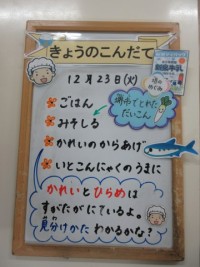 きょうのこんだて
12月23日(火)
ごはん
みそしる
調布でとれた
だいこん
かれいのからあげ
いとこんにゃくのうまに
かれいとひらめは
すがたがにているよ。
見分けかた わかるかな?